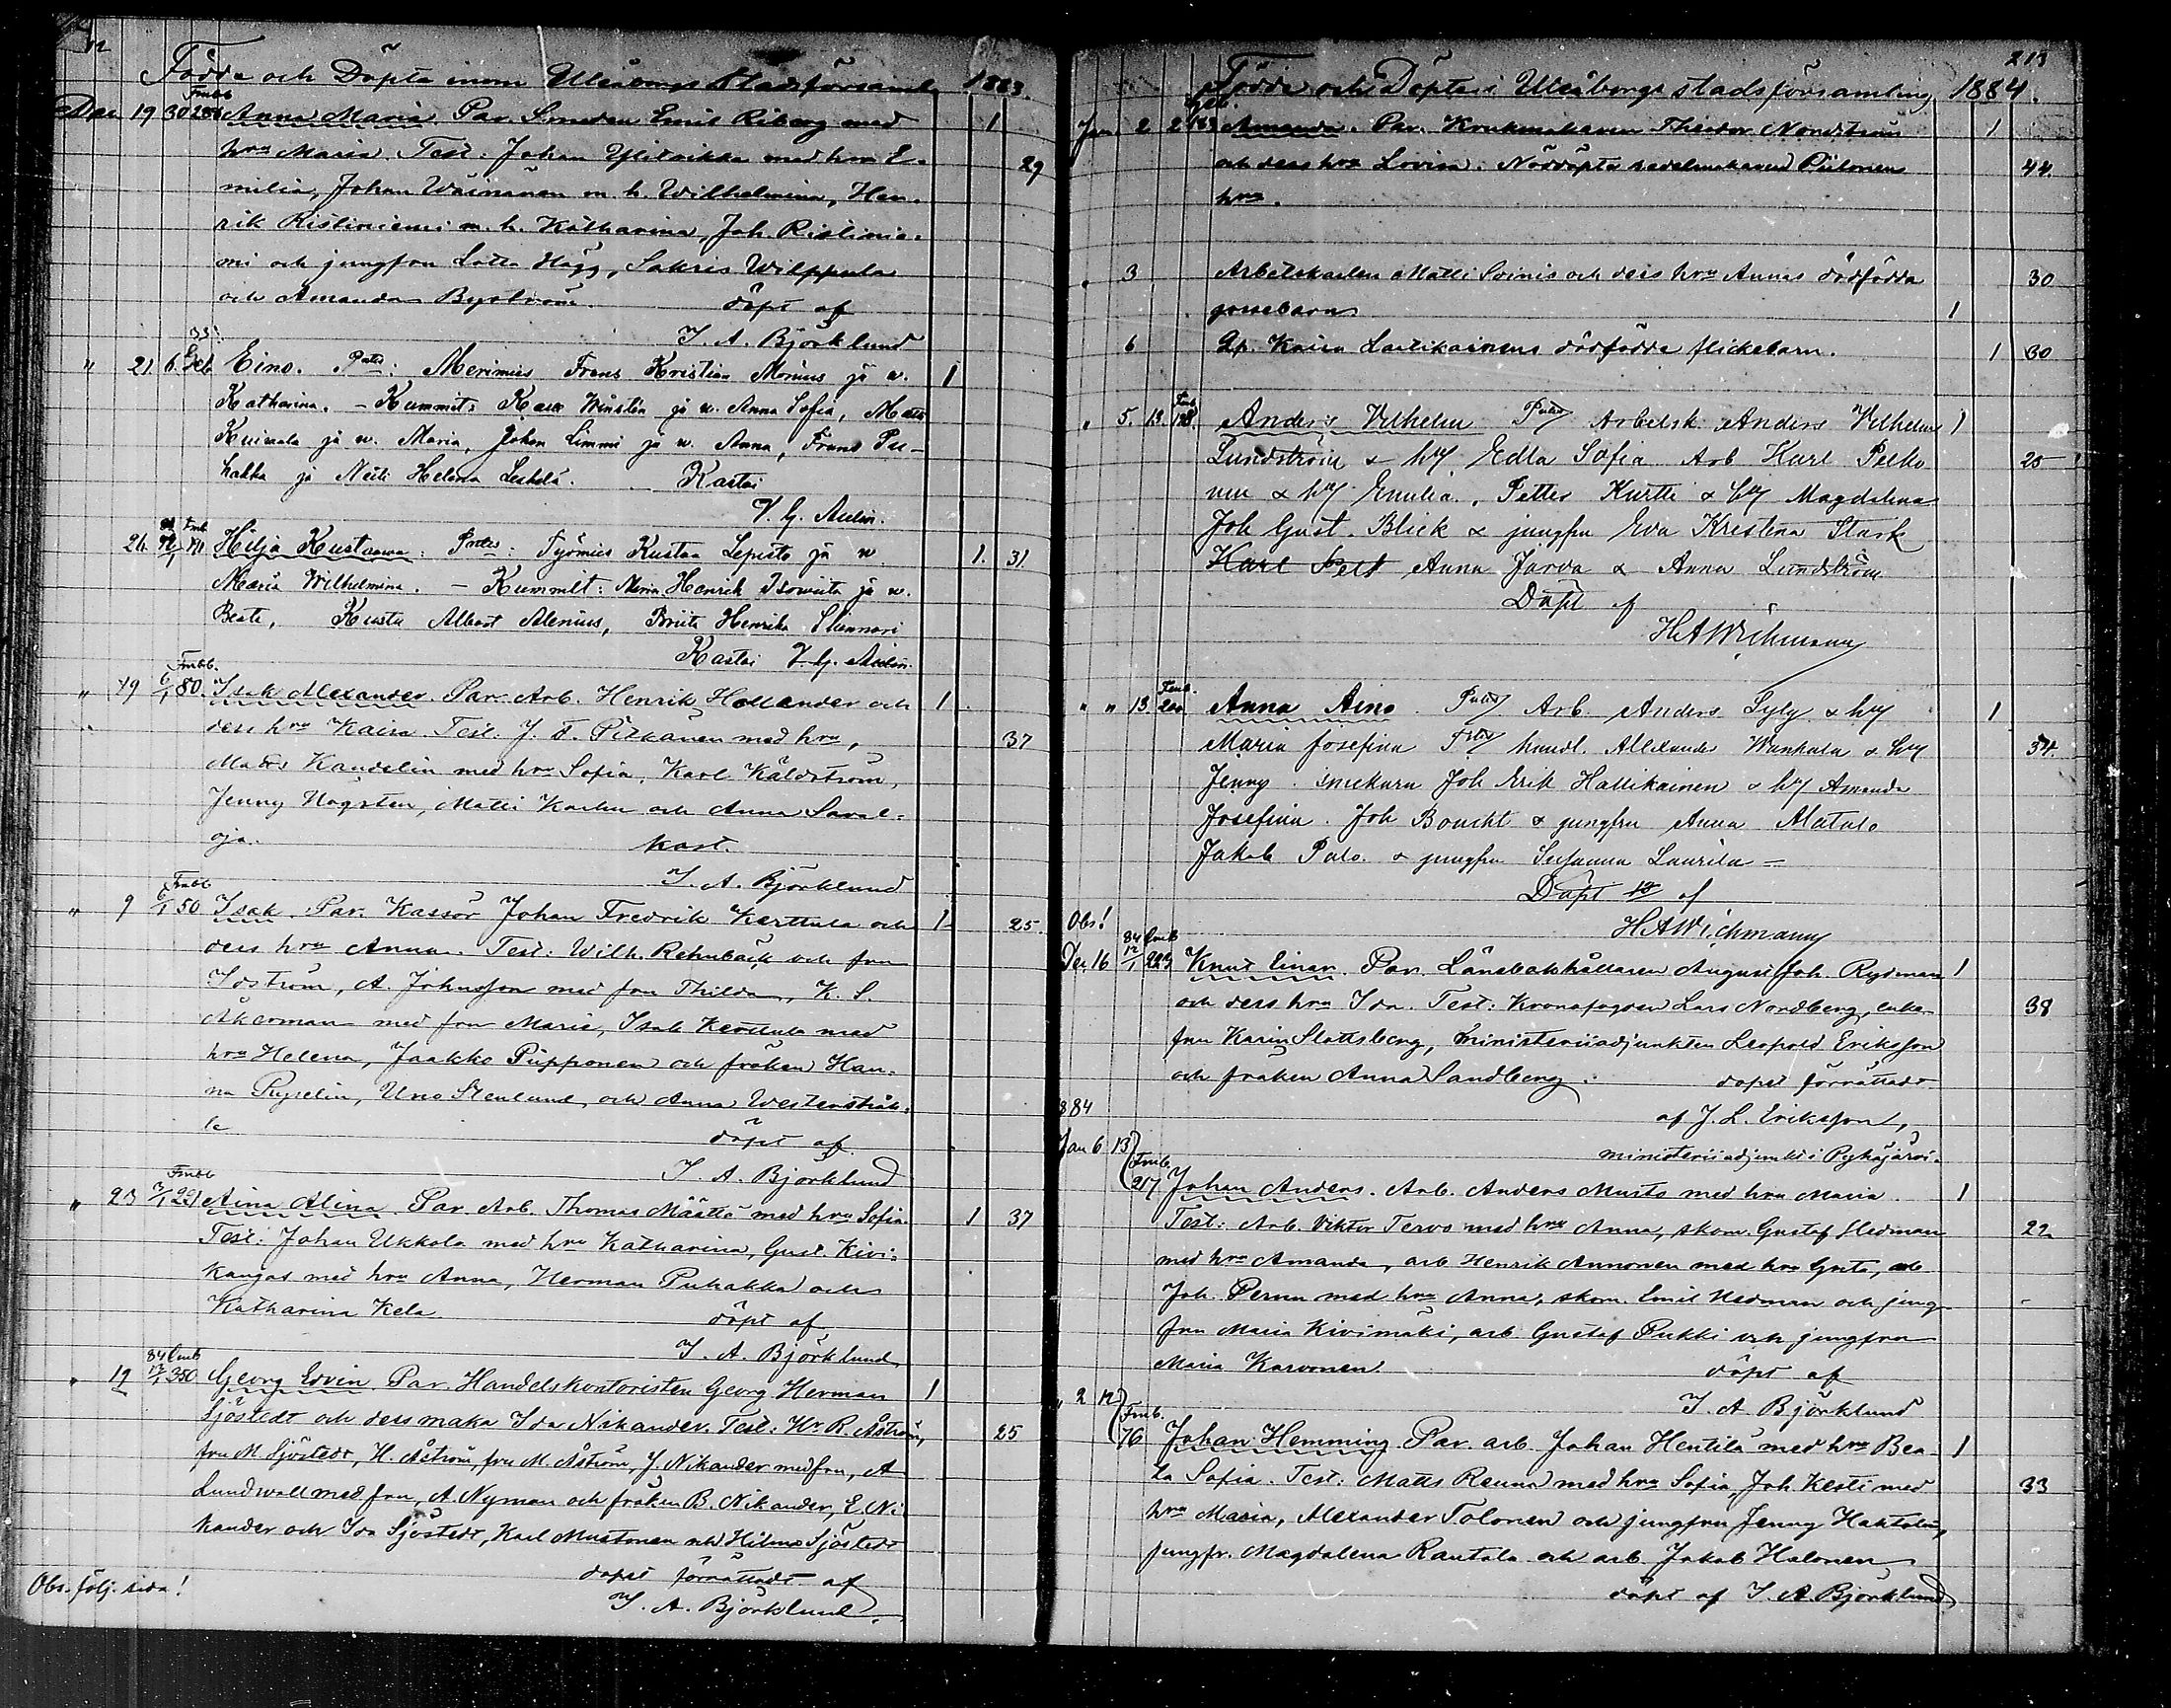 Födde och Döpte inom Uleåborgs Stadsförsaml. 1883.
Dec 19 30 Fmbb 286 Anna Maria. Par. Smeden Emil Riberg med 1
hru Maria. Test: Johan Ylitaikka med hru E- 29
milia, Johan Wäinänen m. h. Wilhelmina, Hen-
rik Ristiniemi m. h. Katharina, Joh. Ristinie-
mi och jungfru Lotta Hägg, Sakris Wilppula
och Amanda Byström. döpt af
I. A. Björklund
" 21 6. Eino. Pater: Merimies Frans Kristian Monius ja w. 1
Katharina. - Kummit: Kaar Winsten ja w. Anna Sofia, Matts
Kuivala ja w. Maria, Johan Limmi ja w. Anna, Frans Pu-
hakka ja Neiti Helena Leskelä. Kastoi
V. G. Aulin.
26. Hilja Kustaava: Pater: Työmies Kustaa Lepistö ja w 1. 31
Maria Wilhelmina. - Kummit: Meriм. Henrik Isoviita ja w.
Beate, Kusta Albert Alenius, Briita Henrika Slunnari
Kastoi V. G. Aulin.
" 29 6/1 Fmbb. 80. Isak Alexander. Par. Arb. Henrik Hollander och 1
dess hru Kaisa. Test. J. F. Pitkänen med hru, 37
Matts Kandelin med hru Sofia, Karl Käldström,
Jenny Högsten, Matti Karhu och Anna Saval-
oja. kast.
I. A. Björklund
" 9 6/1 Fmbb 50 Isak. Par. Kassör Johan Fredrik Karttula och 1 25.
dess hru Anna. Test: Wilh. Rehnbäck och fru
Idström, A. Johnsson med fru Thilda, K. S.
Åkerman med fru Maria, Isak Karttula med
hru Helena, Jaakko Piipponen och fröken Han-
na Ryselin, Uno Stenlund, och Anna Westerstråh-
le döpt af
I. A. Björklund
" 23 7/1 Fmbb 221 Aina Alina. Par Arb. Thomas Määttä med hru Sofia 1 37
Test: Johan Ukkola med hru Katharina, Gust. Kivi-
kangas med hru Anna, Herman Puhakka och
Katharina Kela döpt af
I. A. Björklund
" 12 84 12/1 Fmb 380 Georg Edvin. Par. Handelskontoristen Georg Herman 1
Sjöstedt och dess maka Ida Nikander. Test: Hr. R. Åström, 25
fru M. Sjöstedt, H. Åström, fru M. Åström, J. Nikander med fru, A
Lundwall med fru, A. Nyman och fröken B. Nikander, E. Ni-
kander och Ida Sjöstedt, Karl Mustonen och Hilma Sjöstedt
dopet förrättadt af
I. A. Björklund
Obs. följ. sida!
213
Födde och Döpte i Uleåborgs stadsförsamling 1884.
Jan 2 2 Amanda. Par. Krukmakaren Theodor Nordström 1
och dess hru Lovisa. Nöddöpta sadelmakaren Piiponens 44.
hru.
" 3 Arbetskarlen Matti Soinis och dess hru Annas dödfödda 30
gossebarn 1
6 Qp. Kaisa Lartikainens dödfödda flickebarn. 1 30
" 5. 13. Fmb. 128. Anders Vilhelm Pater/ Arbetsk. Anders Vilhelm 1
Lundström & hu/ Edla Sofia Arb Karl Pelko 25
nen & hu/ Emilia., Petter Kurtti & hu/ Magdalena
Joh Gust. Blick & jungfru Eva Kristina Stark
Karl Pelt Anna Jarva & Anna Lundström
Döpt af
HAWichmann
" " 13. Fmb. 200. Anna Aino. Pater/ Arb. Anders Tyly & hu/ 1
Maria Josefina Test/ handl. Allexander Wankala & hu/ 34.
Jenny. snickare Joh Erik Hallikainen & hu/ Amanda
Josefina. Joh Boucht & jungfru Anna Alatalo
Jakob Palo. & jungfru Susanna Laurila -
Döpt af
Obs! HAWichmann
Dec 16 84 12/1 Fmb 223 Knut Einar. Par. Länebokhållaren August Joh. Rydman 1
och dess hru Ida. Test: Kronofogden Lars Nordberg, enke- 38
fru Karin Slottsberg, ministeriiadjunkten Leopold Eriksson
och fröken Anna Sandberg. dopet förrättadt
af J. L. Eriksson,
884 ministeriiadjunkt i Pyhäjärvi.
Jan 6 13 Fmb. 217 Johan Anders. Arb. Anders Musto med hru Maria. 1
Test: Arb. Viktor Tervo med hru Anna, skom. Gustaf Hedman 22
med hru Amanda, arb Henrik Annonen med hru Greta, arb
Joh. Perunu med hru Anna, skom. Emil Hedman och jung-
fru Maria Kivimäki, arb. Gustaf Pukki och jungfru
Maria Karvonen. döpt af
I. A Björklund
" 2 12 Fmb. 76 Johan Hemming Par. arb. Johan Hentilä med hru Bea- 1
ta Sofia. Test: Matts Reunа med hru Sofia, Joh. Kesti med 33
hru Maria, Alexander Tolonen och jungfru Jenny Haktolin,
jungfr. Magdalena Rautala och arb. Jakob Halonen
döpt af I. A Björklund